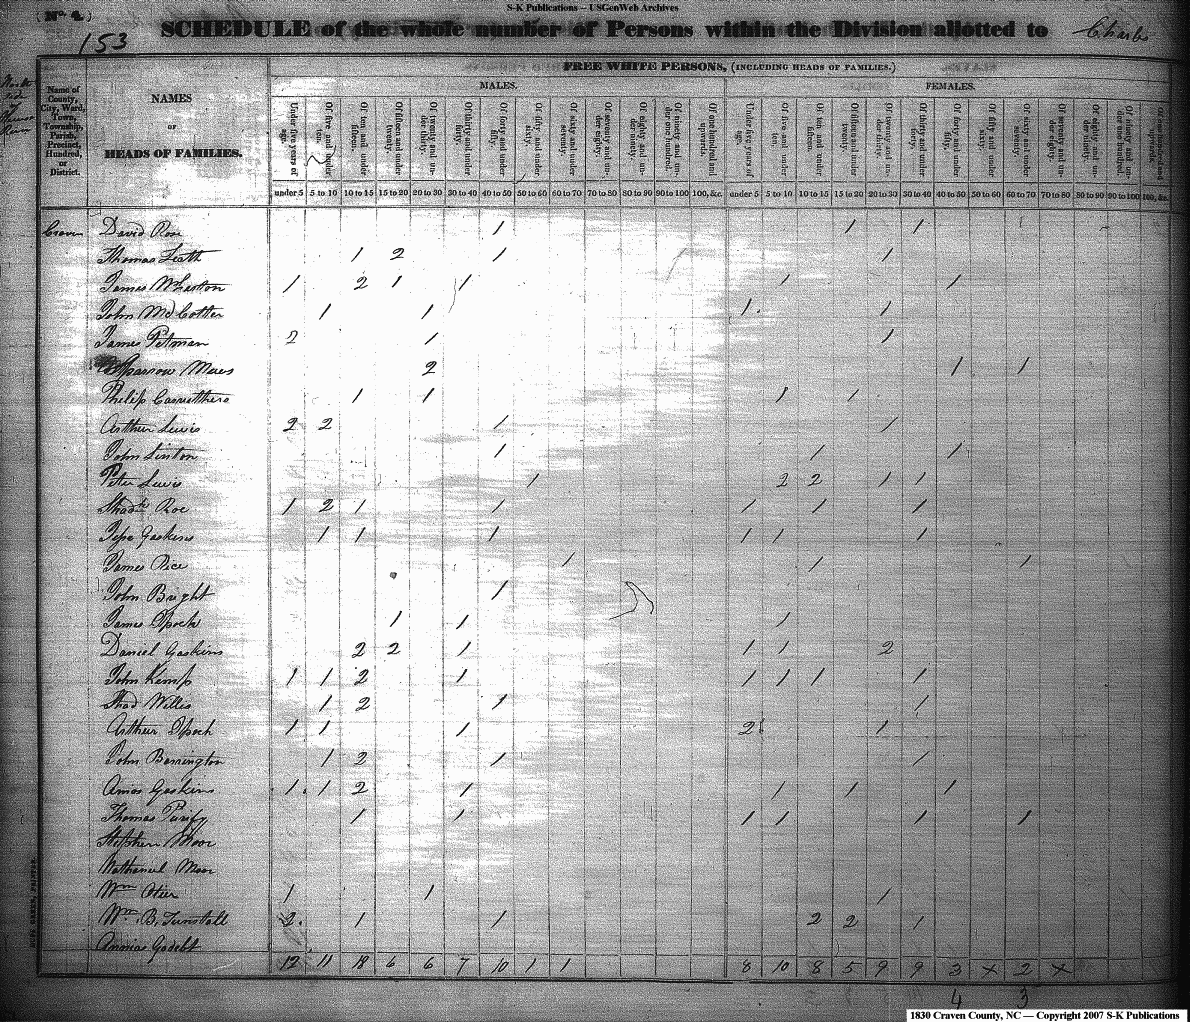 S-K Publications – USGenWeb Archives
(No. 2)
SCHEDULE of the whole number of Persons within the Division allotted to Charles
153
FREE WHITE PERSONS, (INCLUDING HEADS OF FAMILIES.)
MALES. FEMALES.
Name of County, City, Ward, Town, Township, Parish, Precinct, Hundred, or District.
NAMES
or
HEADS OF FAMILIES.
Under five years of age. Of five and under ten. Of ten and under fifteen. Of fifteen and under twenty. Of twenty and under thirty. Of thirty and under forty. Of forty and under fifty. Of fifty and under sixty. Of sixty and under seventy. Of seventy and under eighty. Of eighty and under ninety. Of ninety and under one hundred. Of one hundred and upwards. Under five years of age. Of five and under ten. Of ten and under fifteen. Of fifteen and under twenty. Of twenty and under thirty. Of thirty and under forty. Of forty and under fifty. Of fifty and under sixty. Of sixty and under seventy. Of seventy and under eighty. Of eighty and under ninety. Of ninety and under one hundred.
under 5 5 to 10 10 to 15 15 to 20 20 to 30 30 to 40 40 to 50 50 to 60 60 to 70 70 to 80 80 to 90 90 to 100 100, &c. under 5 5 to 10 10 to 15 15 to 20 20 to 30 30 to 40 40 to 50 50 to 60 60 to 70 70 to 80 80 to 90 90 to 100 100, &c.
Craven David Roe 1 1 1
Thomas Leath 1 2 1 1
James 1 2 1 1 1 1
John McCotter 1 1 1. 1
James Pitman 2 1 1
Sparrow Mews 2 1 1
Philip Caruthers 1 1 1 1
Arthur Lewis 2 2 1 1
John Linton 1 1 1
Peter Lewis 1 2 2 1 1
Shadk Roe 1 2 1 1 1 1 1
Gaskins 1 1 1 1 1 1
James Rice 1 1 1
John Bright 1
James Ipock 1 1 1
Daniel Gaskins 2 2 1 1 1 2
John Kemp 1 1 2 1 1 1 1 1
Shad Willis 1 2 1 1
Arthur Ipock 1 1 1 2 1
John Barrington 1 2 1 1
Amos Gaskins 1. 1 2 1 1 1 1
Thomas Purify 1 1 1 1 1 1
Stephen Moor
Nathaniel Moor
Wm 1 1 1
Wm. B. Tunstall 2. 1 1 2 2 1
Godett
12 11 18 6 6 7 10 1 1 8 10 8 5 9 9 3 x 2 x
4 3
1830 Craven County, NC — Copyright 2007 S-K Publications